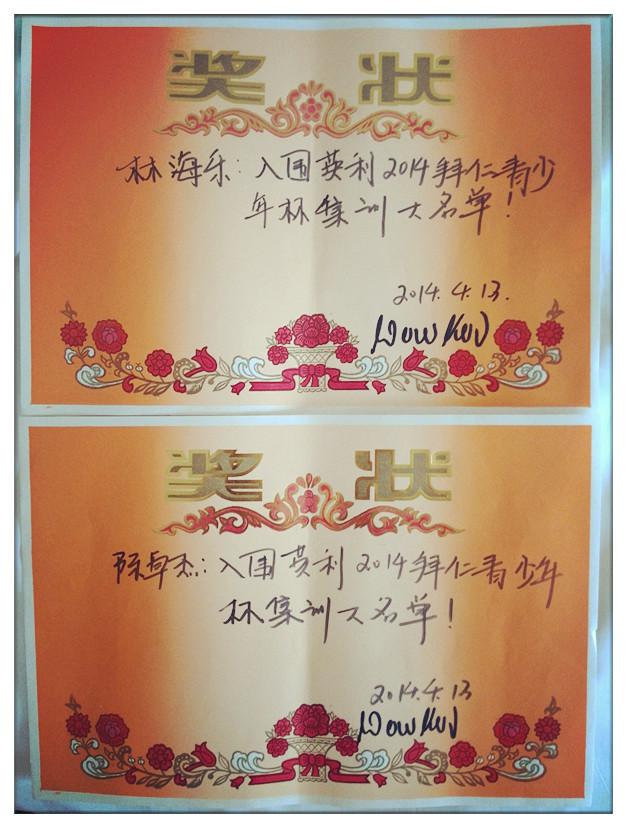 奖 状
林海乐：入围英利2014拜仁青少
年杯集训大名单！
2014.4.13.
奖 状
陈卓杰：入围英利2014拜仁青少年
杯集训大名单！
2014.4.13